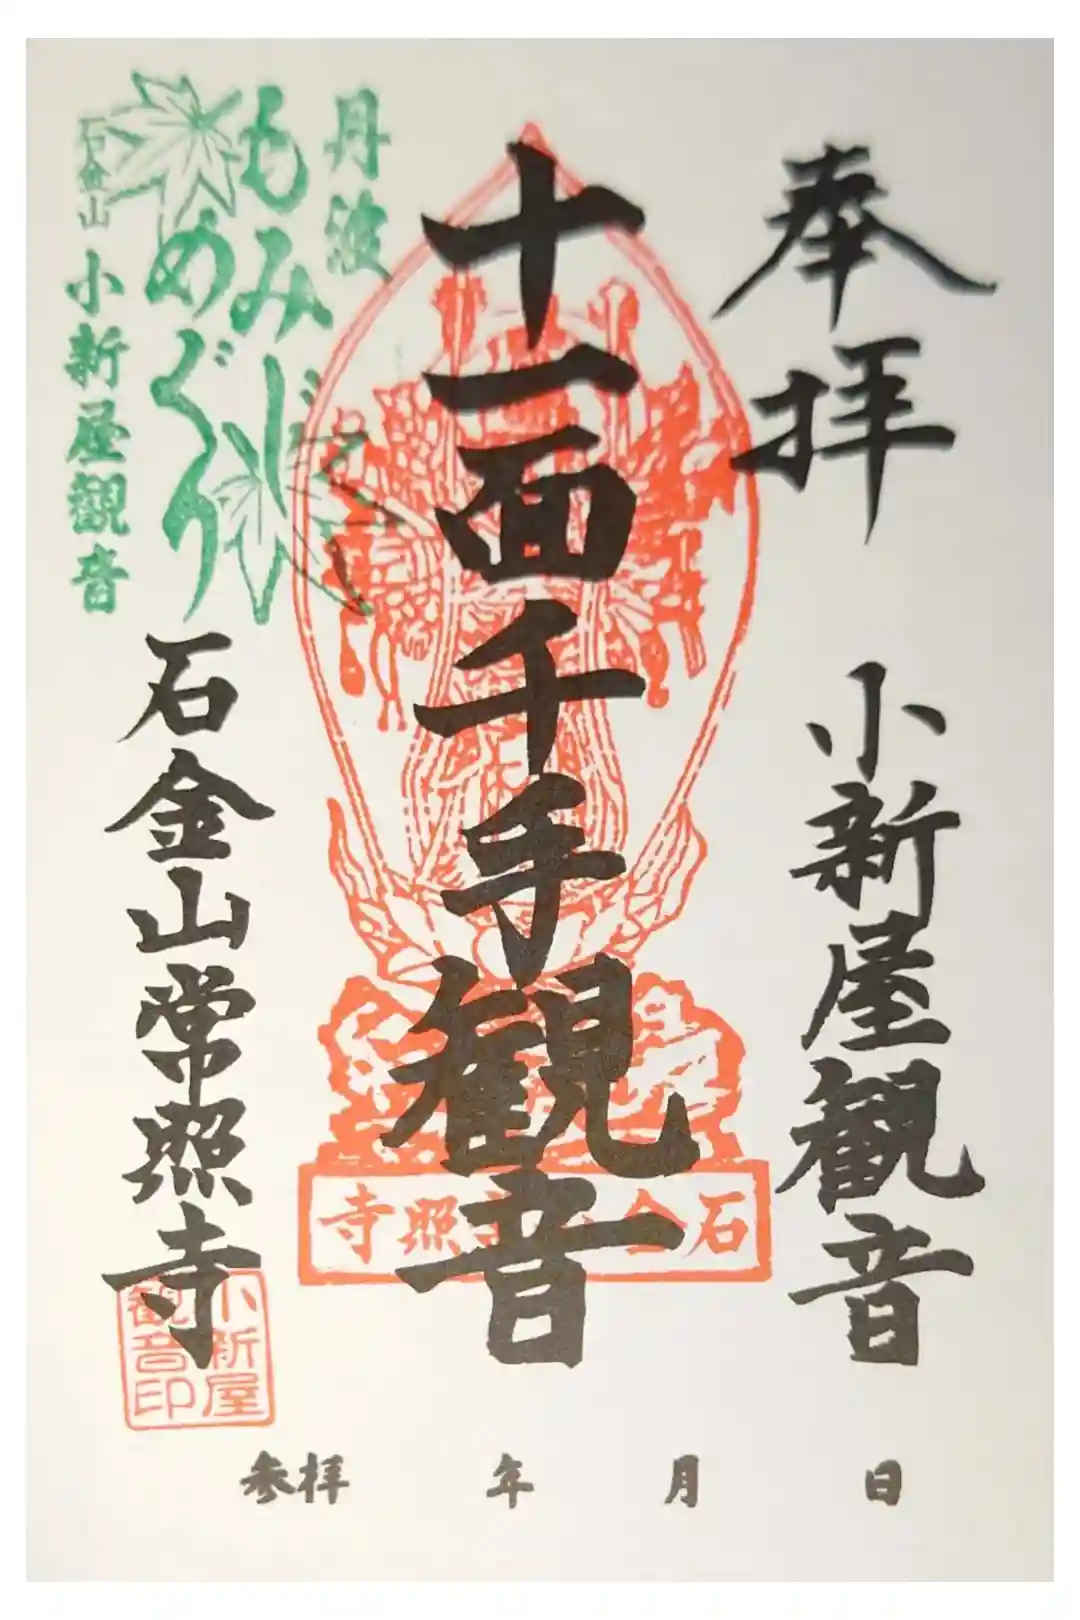 奉拝
小新屋観音
十一面千手観音
丹波
もみじ
めぐり
石金山
小新屋観音
石金山常照寺
寺照
石
小新屋
観音印
参拝 年 月 日